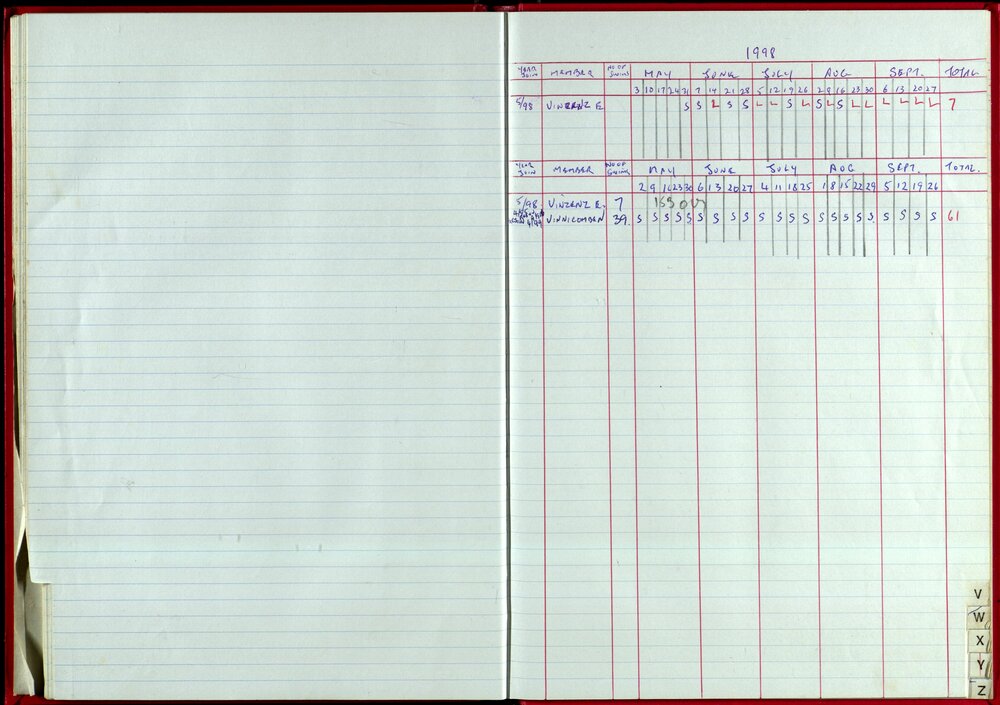 1998
YEAR JOIN MEMBER NO OF SWIMS MAY JUNE JULY AUG SEPT. TOTAL
3 10 17 24 31 7 14 21 28 5 12 19 26 2 8 16 23 30 6 13 20 27
5/98 VINZENZ E S S L S S L L S L S L S L L L L L L 7
YEAR JOIN MEMBER NO OF SWIMS MAY JUNE JULY AUG SEPT. TOTAL.
2 9 16 23 30 6 13 20 27 4 11 18 25 1 8 15 22 29 5 12 19 26
5/98 VINZENZ E. 7
VINNICOMBEN 39 S S S S S S S S S S S S S S S S S S S S S S 61
V
W
X
Y
Z